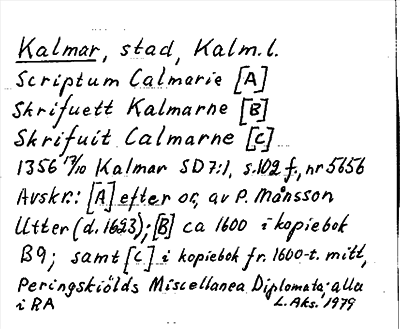 Kalmar, stad, Kalm. l.
Scriptum Calmarie [A]
Skrifuett Kalmarne [B]
Skrifuit Calmarne [C]
1356 17/10 Kalmar SD 7:1, s.102 f., nr 5656
Avskr.: [A] efter or, av P. Månsson
Utter (d. 1623); [B] ca 1600 i kopiebok
B9; samt [C] i kopiebok fr. 1600-t. mitt,
Peringskiölds Miscellanea Diplomata; alla
i RA L. Aks. 1979